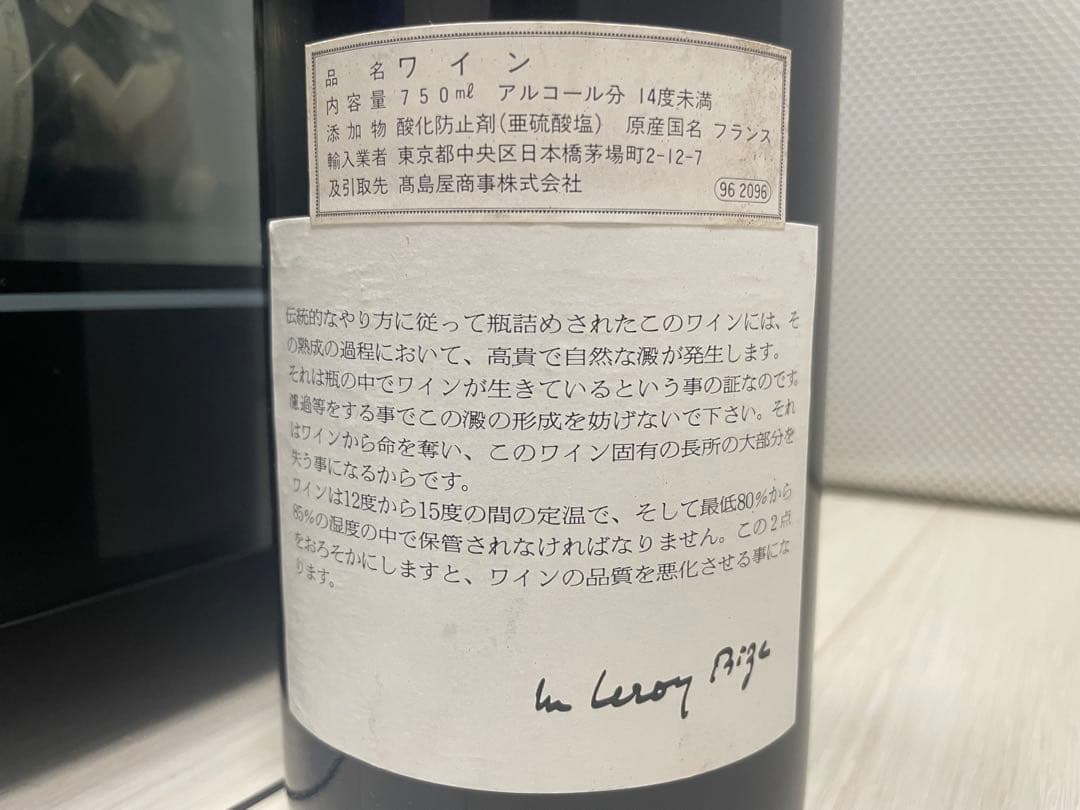 品名 ワイン
内容量 750ml アルコール分 14度未満
添加物 酸化防止剤(亜硫酸塩) 原産国名 フランス
輸入業者 東京都中央区日本橋茅場町2-12-7
及引取先 髙島屋商事株式会社 96 2096
伝統的なやり方に従って瓶詰めされたこのワインには、そ
の熟成の過程において、高貴で自然な澱が発生します。
それは瓶の中でワインが生きているという事の証なのです。
濾過等をする事でこの澱の形成を妨げないで下さい。それ
はワインから命を奪い、このワイン固有の長所の大部分を
失う事になるからです。
ワインは12度から15度の間の定温で、そして最低80%から
85%の湿度の中で保管されなければなりません。この2点
をおろそかにしますと、ワインの品質を悪化させる事にな
ります。
Leroy Bize